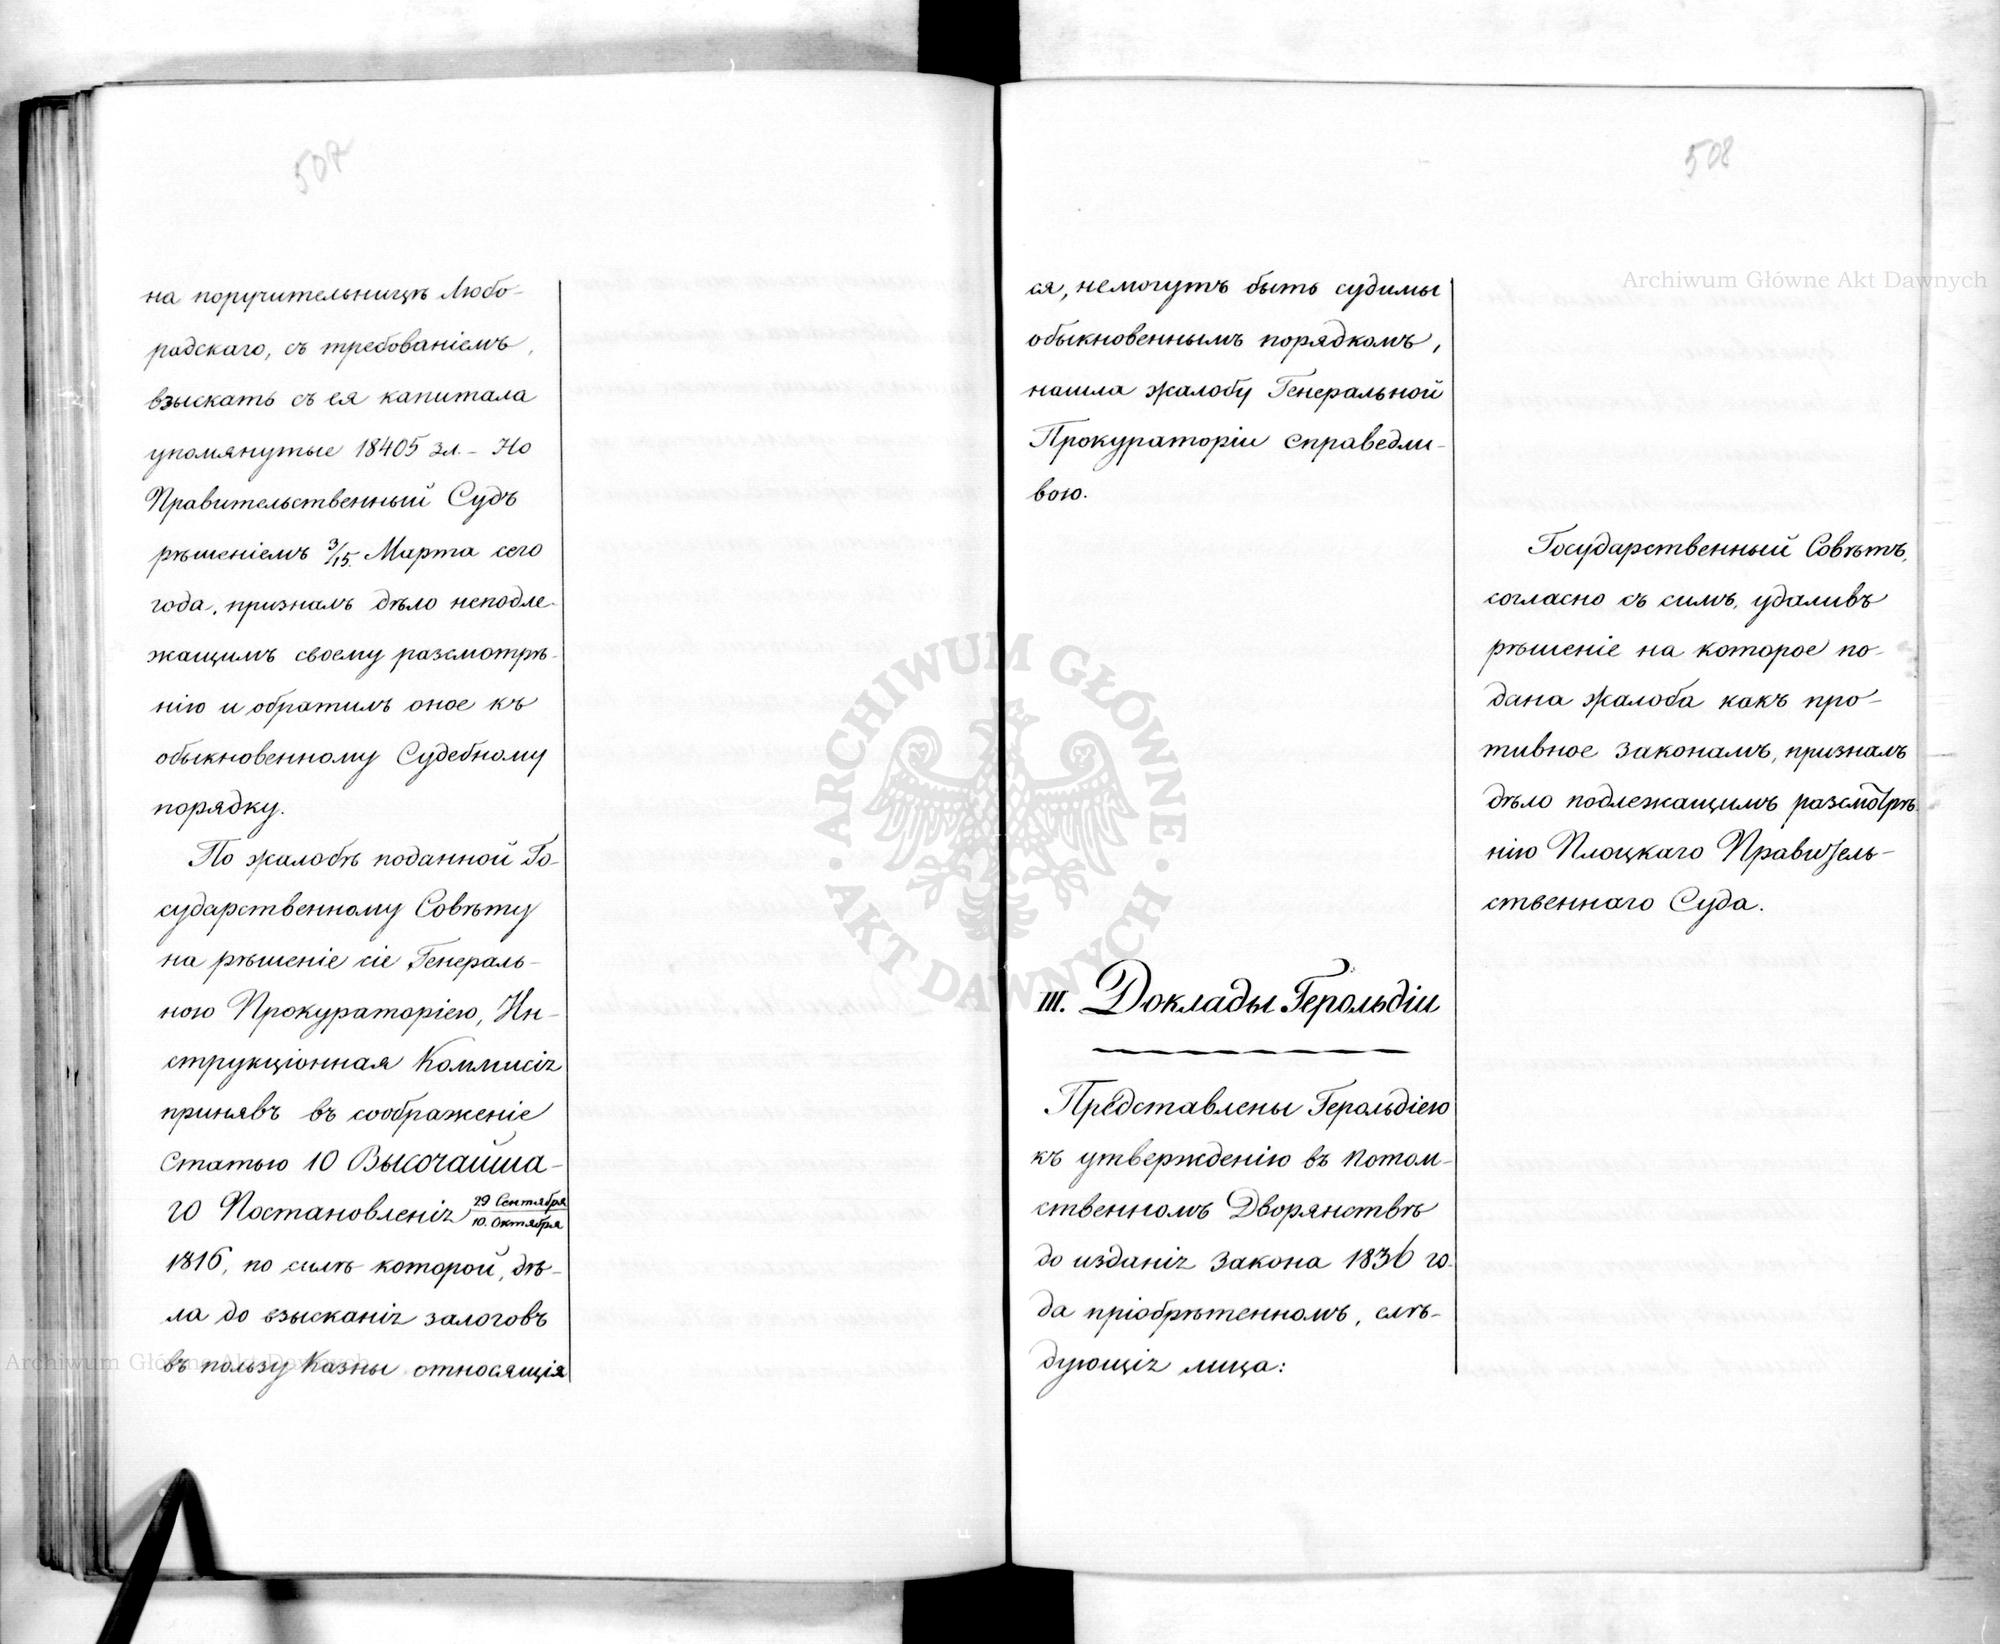 507
на поручительницѣ Любо-
радскаго, съ требованіемъ,
взыскать съ ея капитала
упомянутые 18405 зл. - Но
Правительственный Судъ
рѣшеніемъ 3/15. Марта сего
года, призналъ дѣло неподле-
жащимъ своему разсмотрѣ-
нію и обратилъ оное къ
обыкновенному Судебному
порядку.
По жалобѣ поданной Го-
сударственному Совѣту
на рѣшеніе сіе Генераль-
ною Прокураторіею, Ин-
струкціонная Коммисія
принявъ въ соображеніе
Статью 10 Высочайша-
го Постановленія 29 Сентября / 10. Октября
1816, по силѣ которой, дѣ-
ла до взысканія залоговъ
въ пользу Казны относящія
508
ся, немогутъ быть судимы
обыкновеннымъ порядкомъ,
нашла жалобу Генеральной
Прокураторіи справедли-
вою.
Государственный Совѣтъ,
согласно съ симъ, удаливъ
рѣшеніе на которое по-
дана жалоба какъ про-
тивное законамъ, призналъ
дѣло подлежащимъ разсмотрѣ
нію Плоцкаго Правитель-
ственнаго Суда.
III. Доклады Герольдіи
Представлены Герольдіею
къ утвержденію въ потом-
ственномъ Дворянствѣ
до изданія Закона 1836 го-
да пріобрѣтенномъ, слѣ-
дующія лица:
Archiwum Główne Akt Dawnych
Archiwum Główne Akt Dawnych
ARCHIWUM GŁÓWNE · AKT DAWNYCH ·